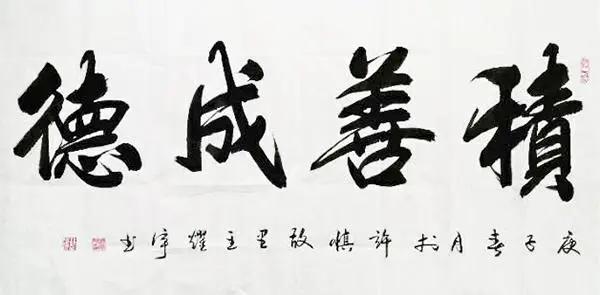 積善成德
庚子春月於許慎故里王耀淳书